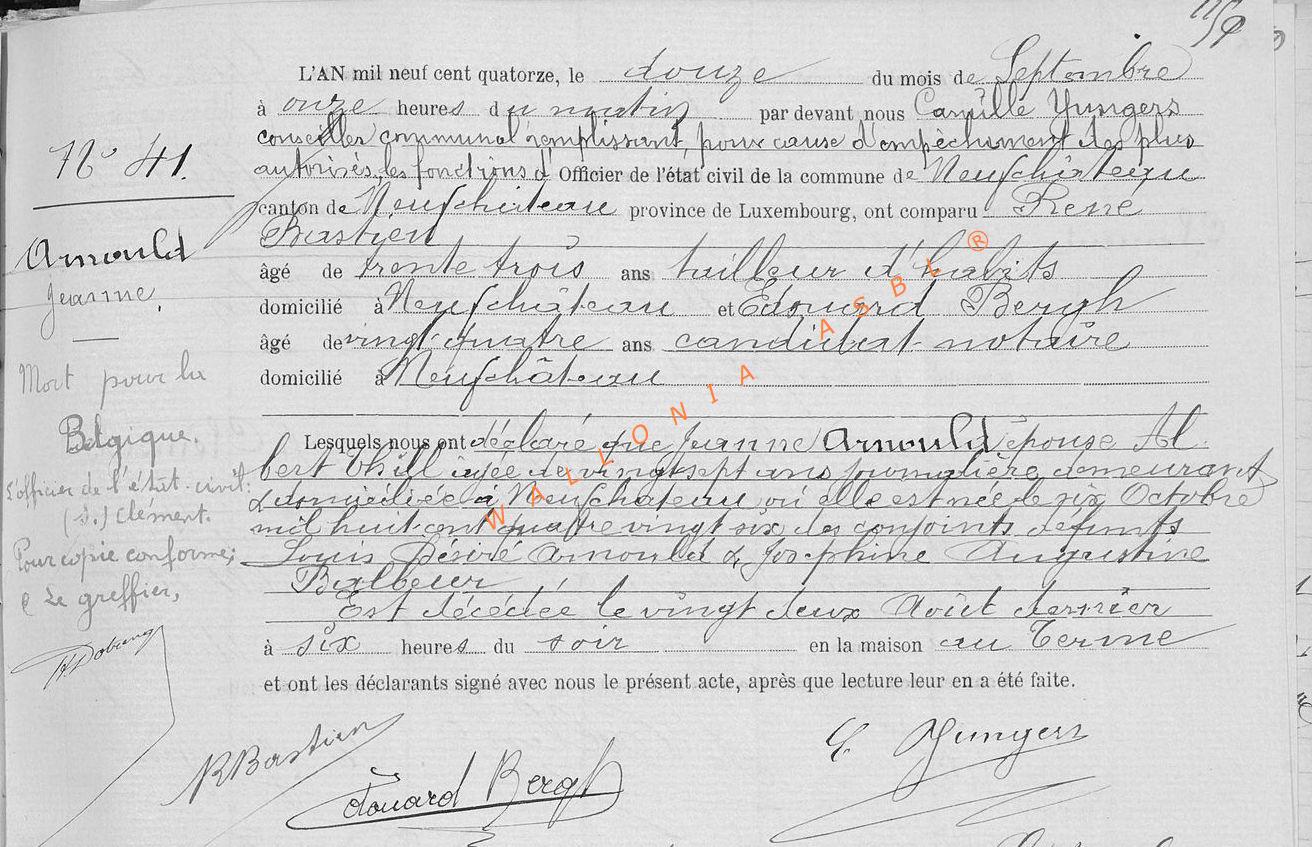 L'AN mil neuf cent quatorze, le douze du mois de Septembre
à onze heures du matin par devant nous Camille Yungers
conseiller communal remplissant, pour cause d'empêchement des plus
autorisés, les fonctions d' Officier de l'état civil de la commune de Neufchâteau
canton de Neufchâteau province de Luxembourg, ont comparu René
Bastien
âgé de trente trois ans tailleur d'habits
domicilié à Neufchâteau et Edouard Bergh
âgé de vingt-quatre ans candidat-notaire
domicilié à Neufchâteau
Lesquels nous ont déclaré que Jeanne Arnould épouse Al
bert âgée de vingt sept ans journalière demeurant
& domiciliée à Neufchateau où elle est née le six Octobre
mil huit cent quatre vingt six des conjoints défunts
Louis Désiré Arnould & Joséphine Augustine
Est décédée le vingt deux Août dernier
à six heures du soir en la maison au Terme
et ont les déclarants signé avec nous le présent acte, après que lecture leur en a été faite.
N° 41.
Arnould
Jeanne.
Mort pour la
Belgique.
L'officier de l'état-civil:
(s.) Clément.
Pour copie conforme;
Le greffier,
RBastien
Edouard Bergh
C Yungers
WALLONIA ASBL ®